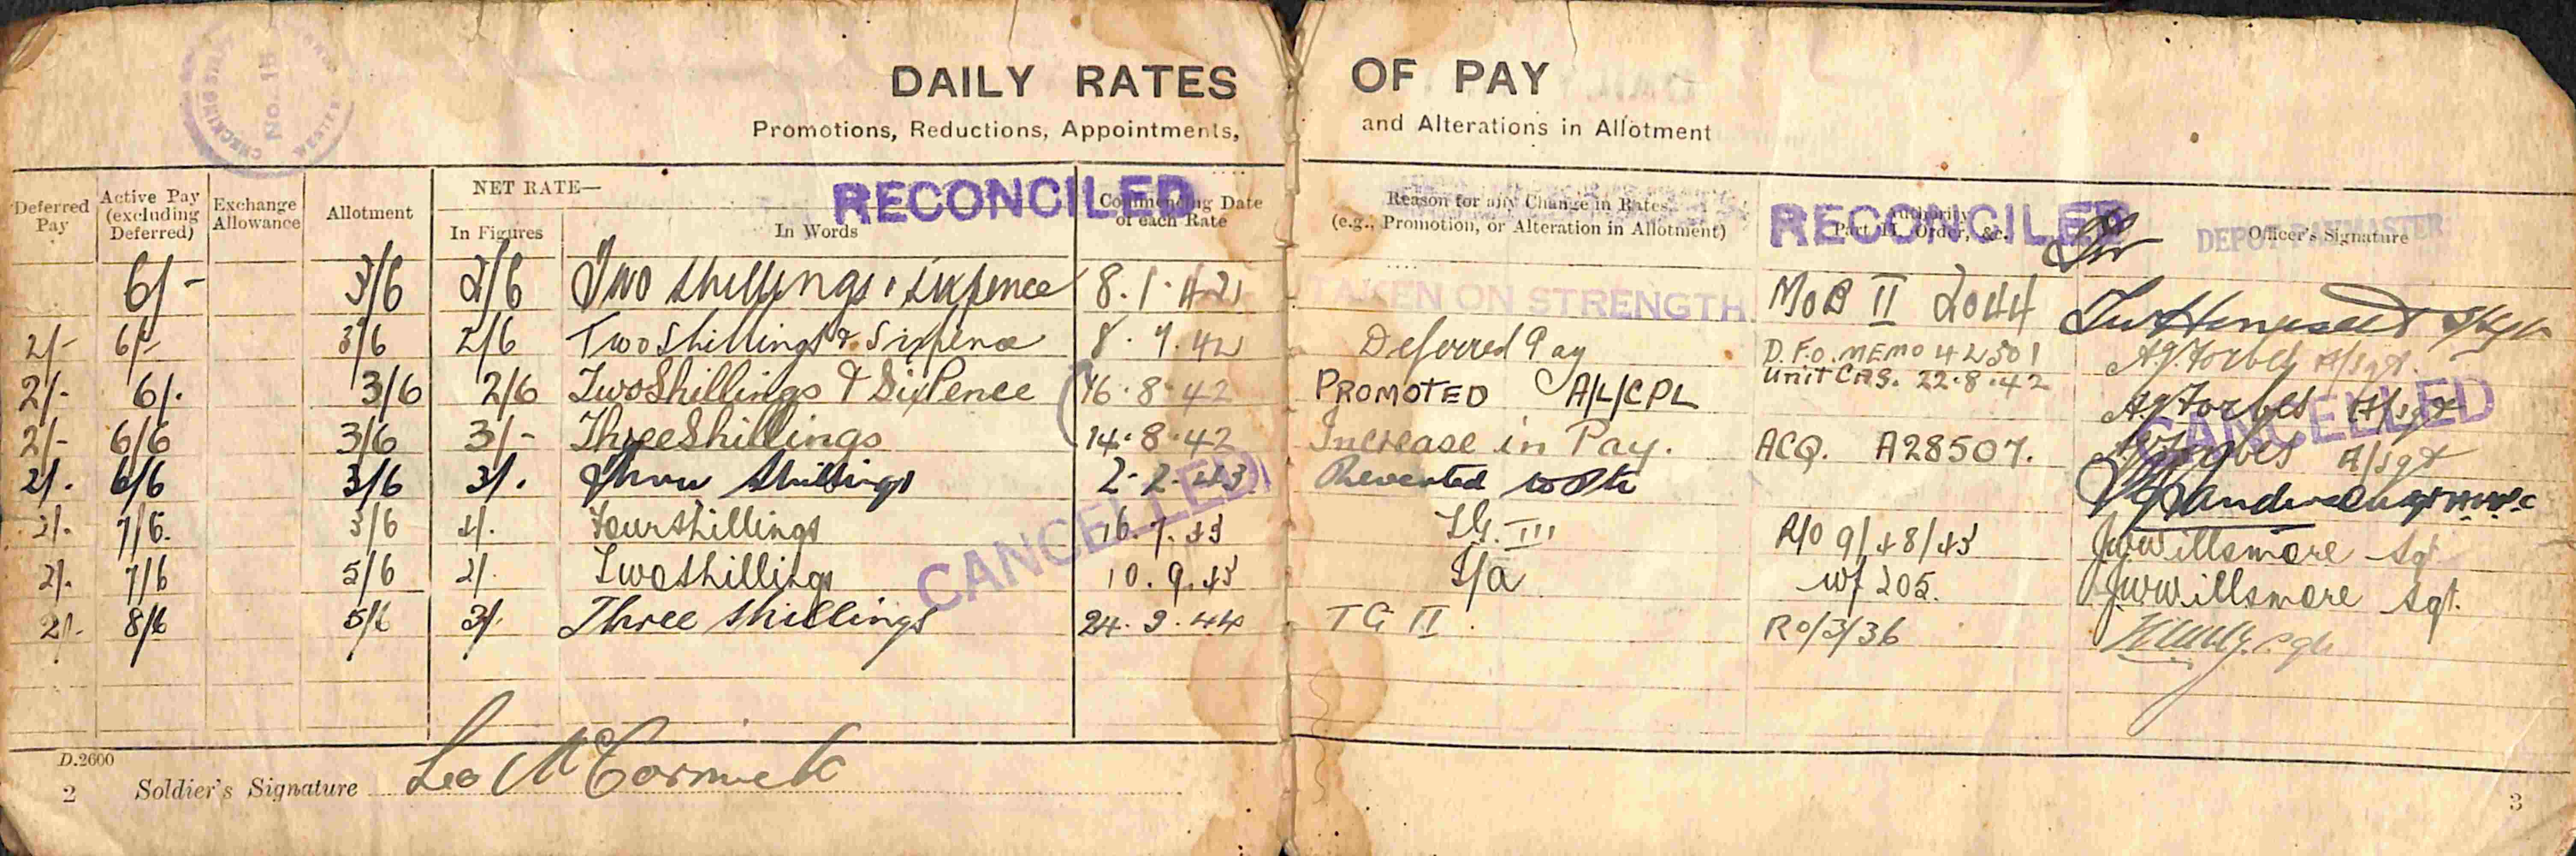 DAILY RATES OF PAY
Promotions, Reductions, Appointments, and Alterations in Allotment
CHECKING No. 15 WESTERN
RECONCILED
RECONCILED
DEPUTY PAYMASTER
Deferred Pay
Active Pay (excluding Deferred)
Exchange Allowance
Allotment
NET RATE—
In Figures
In Words
Commencing Date of each Rate
Reason for any Change in Rates (e.g., Promotion, or Alteration in Allotment)
Authority Part II, Order, &c.
Officer's Signature
6/- 3/6 2/6 Two shillings & sixpence 8.1.42 TAKEN ON STRENGTH MOB II 2044
2/- 6/- 3/6 2/6 Two Shillings & Sixpence 8.7.42 Deferred Pay D.F.O. MEMO 42501 A.G. Forbes A/Sgt.
2/- 6/- 3/6 2/6 Two Shillings & SixPence 16.8.42 PROMOTED A/L/CPL Unit CRS. 22.8.42 A.G. Forbes A/Sgt
2/- 6/6 3/6 3/- Three Shillings 14.8.42 Increase in Pay. ACQ. A28507. A.G. Forbes A/Sgt
2/. 6/6 3/6 3/. Three Shillings 2.2.43 Reverted to Pte
2/. 7/6. 3/6 4/. Four shillings 16.7.43 T.G. III R/O 9/48/43 J.W. Willsmore Sgt
2/. 7/6 5/6 2/. Two shillings 10.9.43 I/a W/ 205. J.W. Willsmore Sgt.
2/. 8/6 5/6 3/. Three shillings 24.3.44 TG II. Ro/3/36
CANCELLED
CANCELLED
D.2600
2 Soldier's Signature Leo McCormick
3